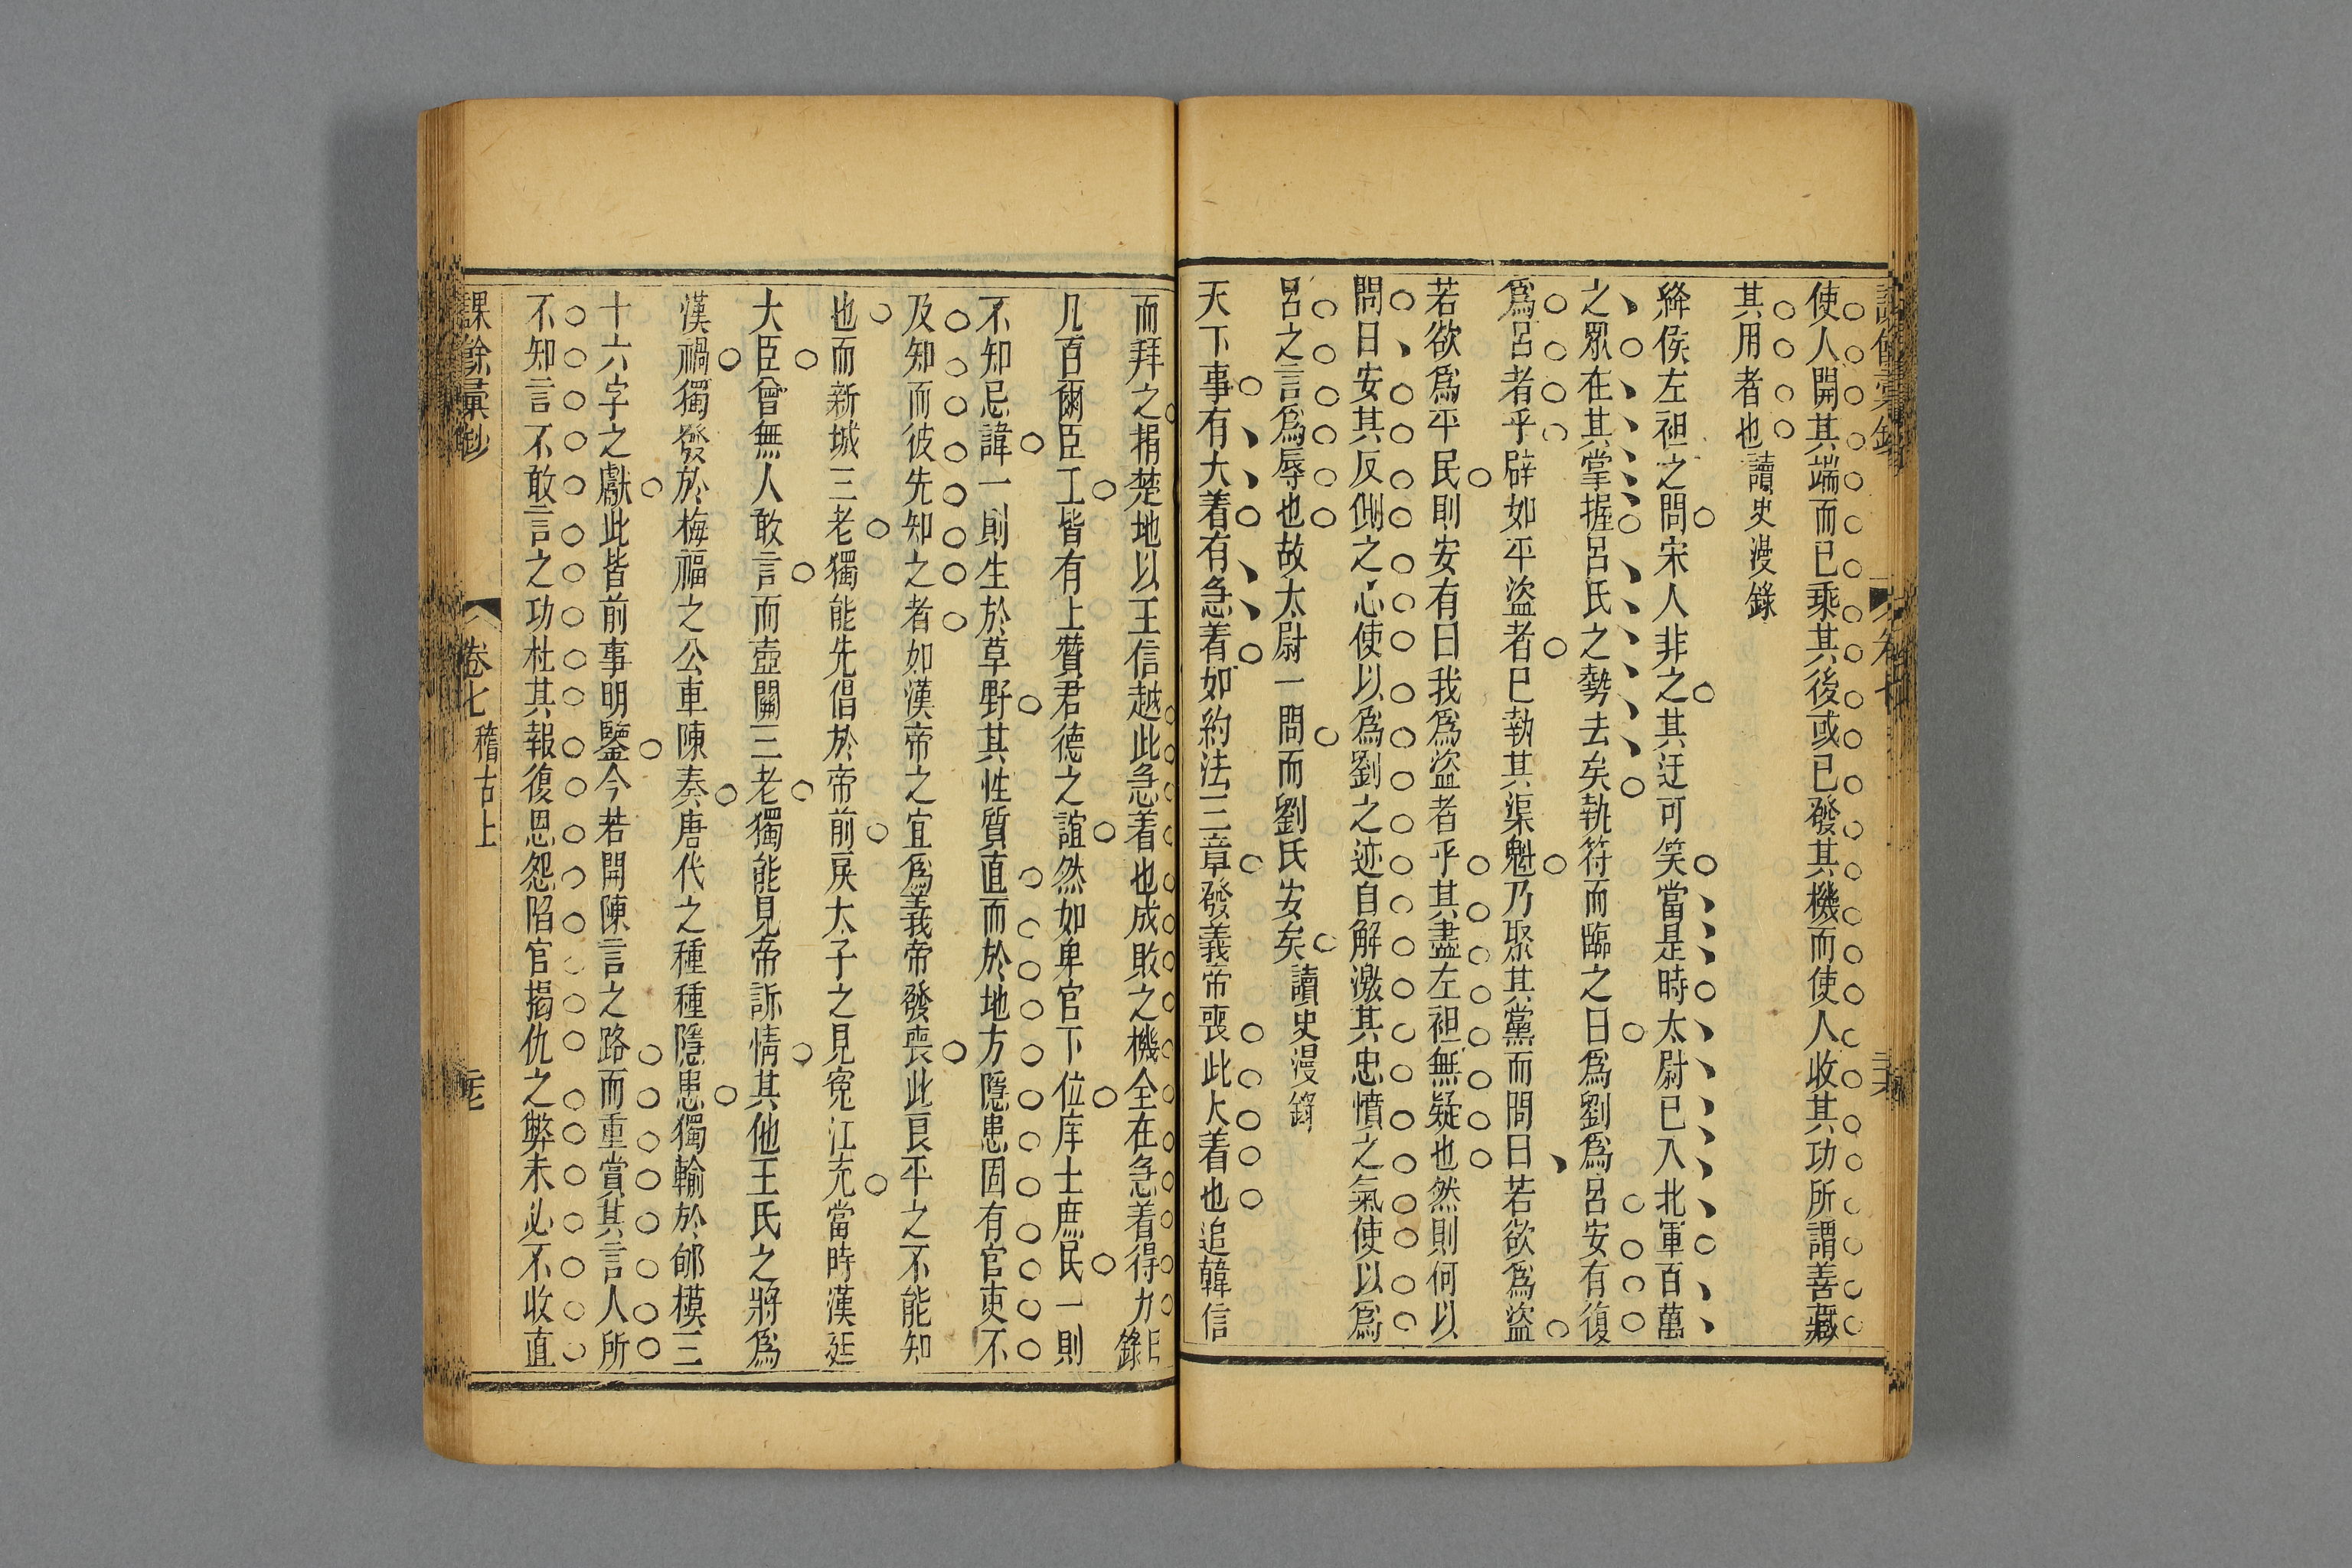 使人開其端而已乘其後或已發其機而使人收其功所謂善藏
其用者也讀史漫錄
絳侯左袒之問宋人非之其迂可笑當是時太尉已入北軍百萬
之眾在其掌握呂氏之勢去矣執符而臨之曰為劉為呂安有復
為呂者乎辟如平盜者已執其渠魁乃聚其黨而問曰若欲為盜
若欲為平民則安有曰我為盜者乎其盡左袒無疑也然則何以
問曰安其反側之心使以為劉之迹自解激其忠憤之氣使以為
呂之言為辱也故太尉一問而劉氏安矣讀史漫錄
天下事有大着有急着如約法三章發義帝喪此大着也追韓信
而拜之捐楚地以王信越此急着也成敗之機全在急着得力日錄
凡百爾臣工皆有上贊君德之誼然如卑官下位庠士庶民一則
不知忌諱一則生於草野其性質直而於地方隱患固有官吏不
及知而彼先知之者如漢帝之宜為義帝發喪此良平之不能知
也而新城三老獨能先倡於帝前戾太子之見寃江充當時漢廷
大臣曾無人敢言而壺關三老獨能見帝訴情其他王氏之將為
漢禍獨發於梅福之公車陳奏唐代之種種隱患獨輸於郇模三
十六字之獻此皆前事明鑒今若開陳言之路而重賞其言人所
不知言不敢言之功杜其報復恩怨陷官揭仇之弊未必不收直
課餘彙鈔 卷七 稽古上